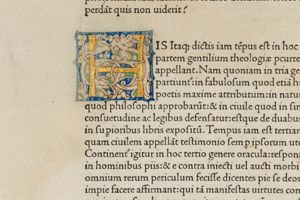 perdãt quis non uiderit?
HIS Itaq; dictis iam tẽpus est in hoc
partem gentilium theologiæ pcurrere
appellant. Nam quoniam in tria ge
partiunt: in fabulosum quod etiã hi
poetis maxime attributum in natura
quod philosophi approbarũt: & in ciuile quod in sin
consuetudine ac legibus defensatur: estque de duabus
in supioribus libris expositũ. Tempus iam est tertiam
quam ciuilem appellãt testimonio semp ipsorum ute
Continent igitur in hoc tertio genere oracula: respons
in hominibus piis: & e contra iniecti uel aucti morbi
omnium rerum periculum fecisse dicentes pie se deos
impie facere affirmant: qui tã manifestas uirtutes con